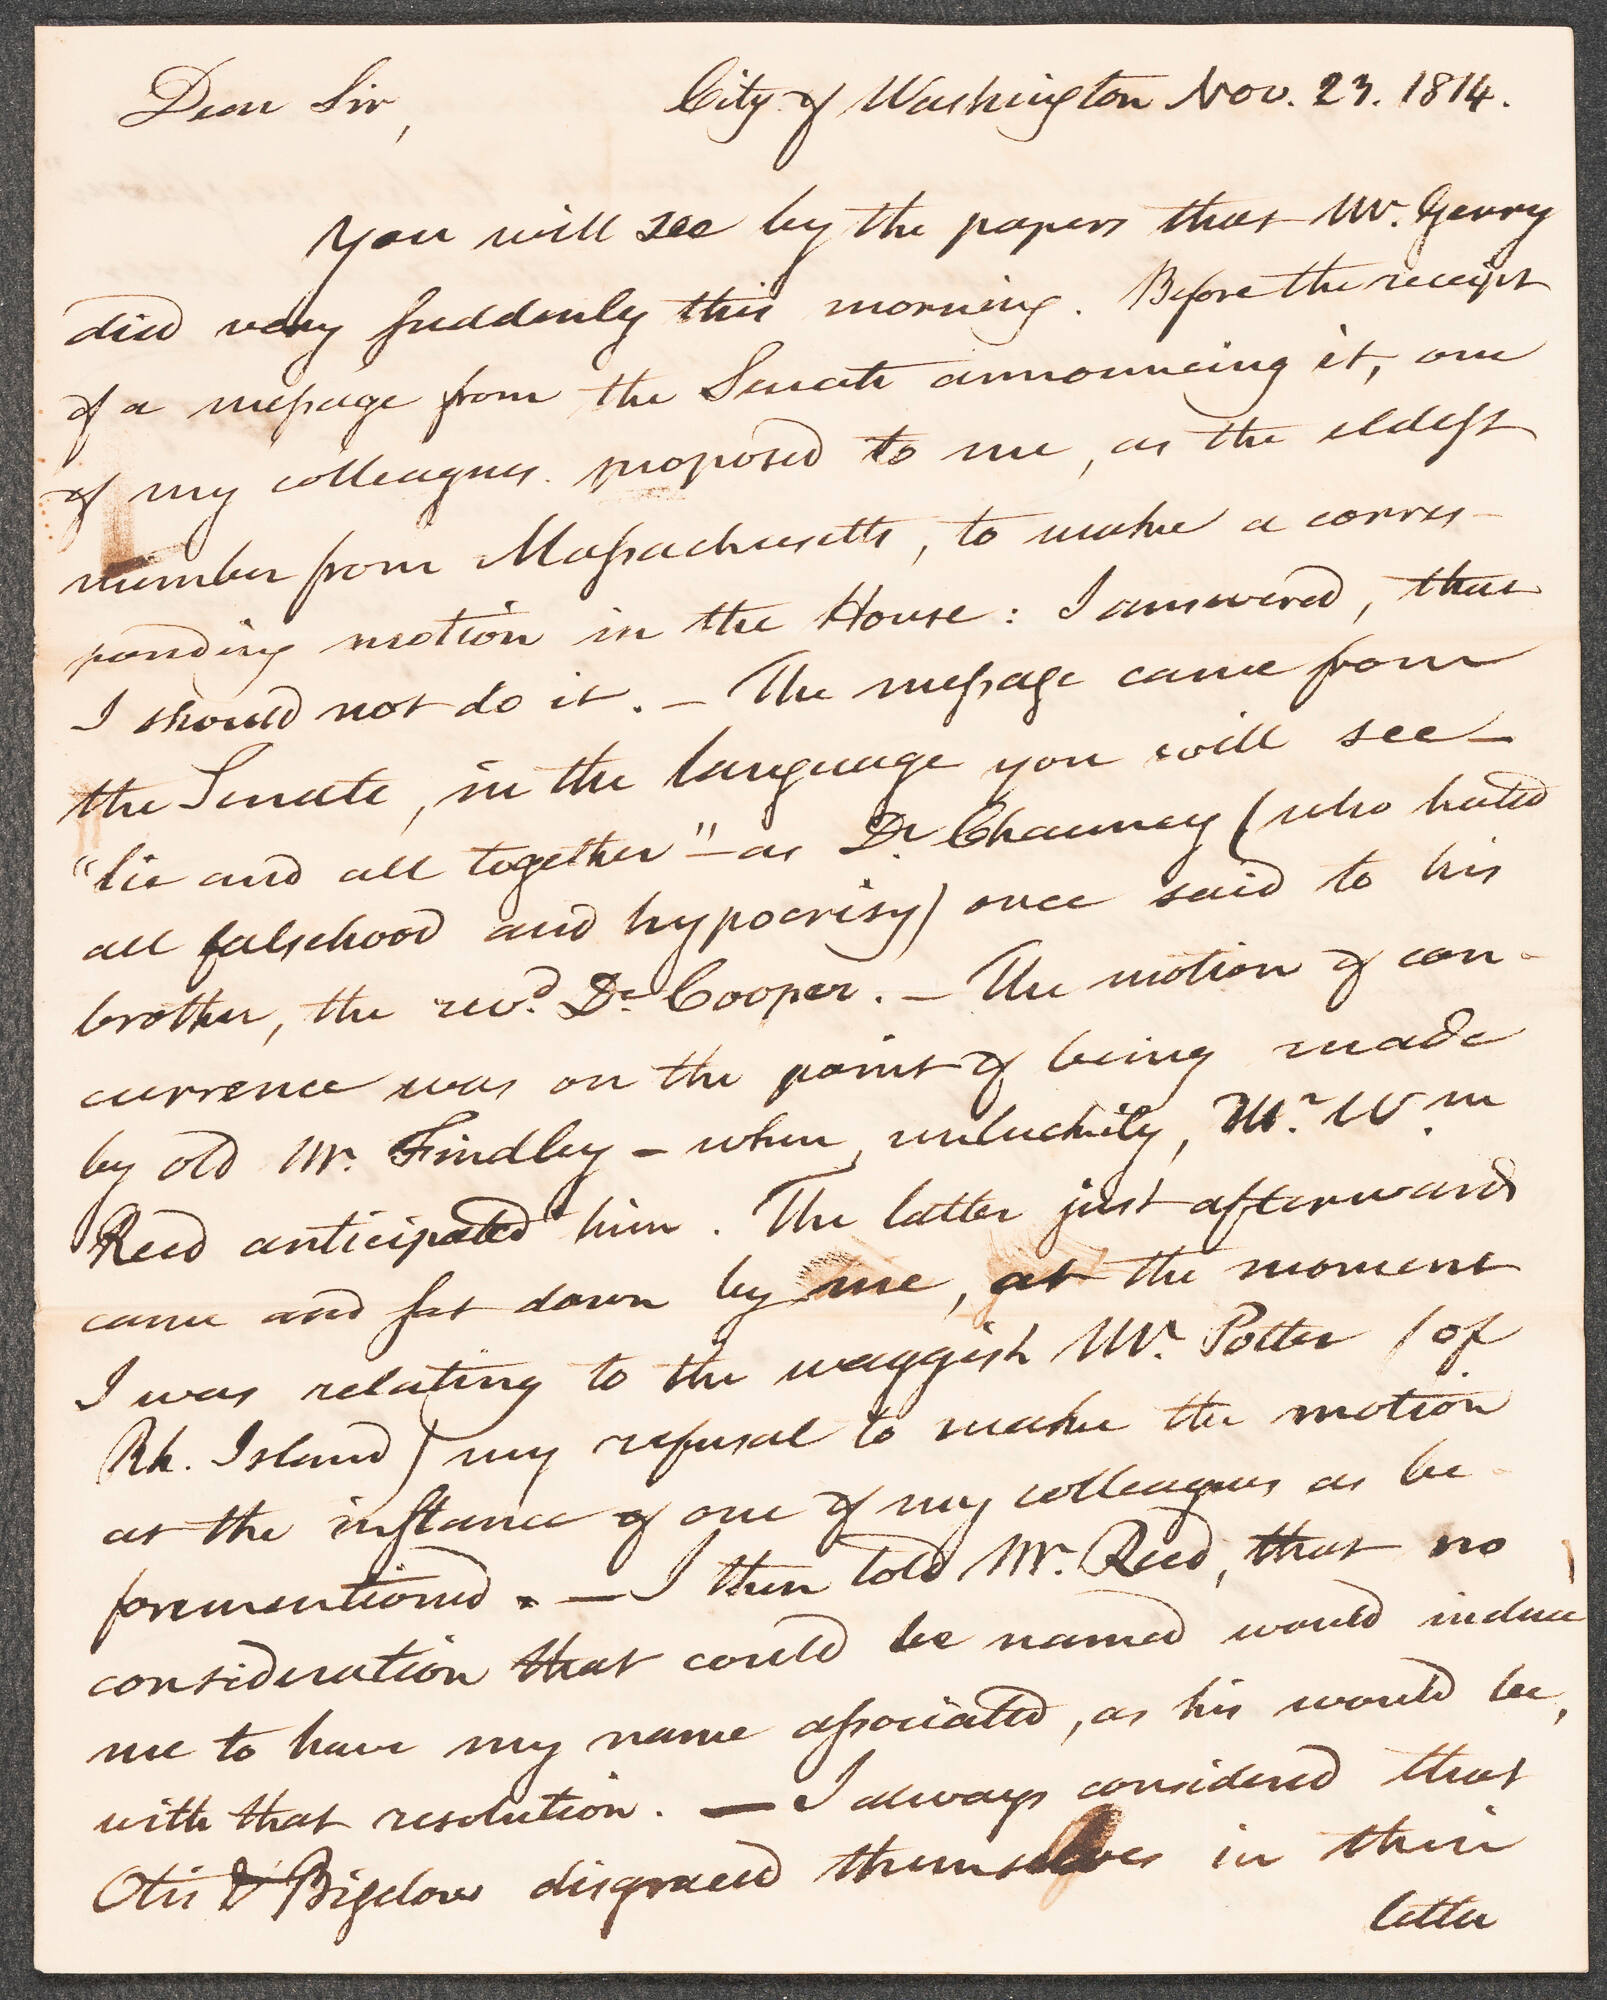 Dear Sir, City of Washington Nov. 23. 1814.
You will see by the papers that Mr. Gerry
died very suddenly this morning. Before the receipt
of a message from the Senate announcing it, one
of my colleagues proposed to me, as the eldest
member from Massachusetts, to make a corres-
ponding motion in the House: I answered, that
I should not do it. — The message came from
the Senate, in the language you will see —
"lie and all together" — as Dr. Chauncey (who hated
all falsehood and hypocrisy) once said to his
brother, the revd. Dr. Cooper. — The motion of con-
currence was on the point of being made
by old Mr. Findley — when, unluckily, Mr. Wm.
Reed anticipated him. The latter just afterwards
came and sat down by me, at the moment
I was relating to the waggish Mr. Potter (of
Rh. Island) my refusal to make the motion
at the instance of one of my colleagues as be-
forementioned. — I then told Mr. Reed, that no
consideration that could be named would induce
me to have my name associated, as his would be,
with that resolution. — I always considered that
Otis & Bigelow disgraced themselves in their
letter